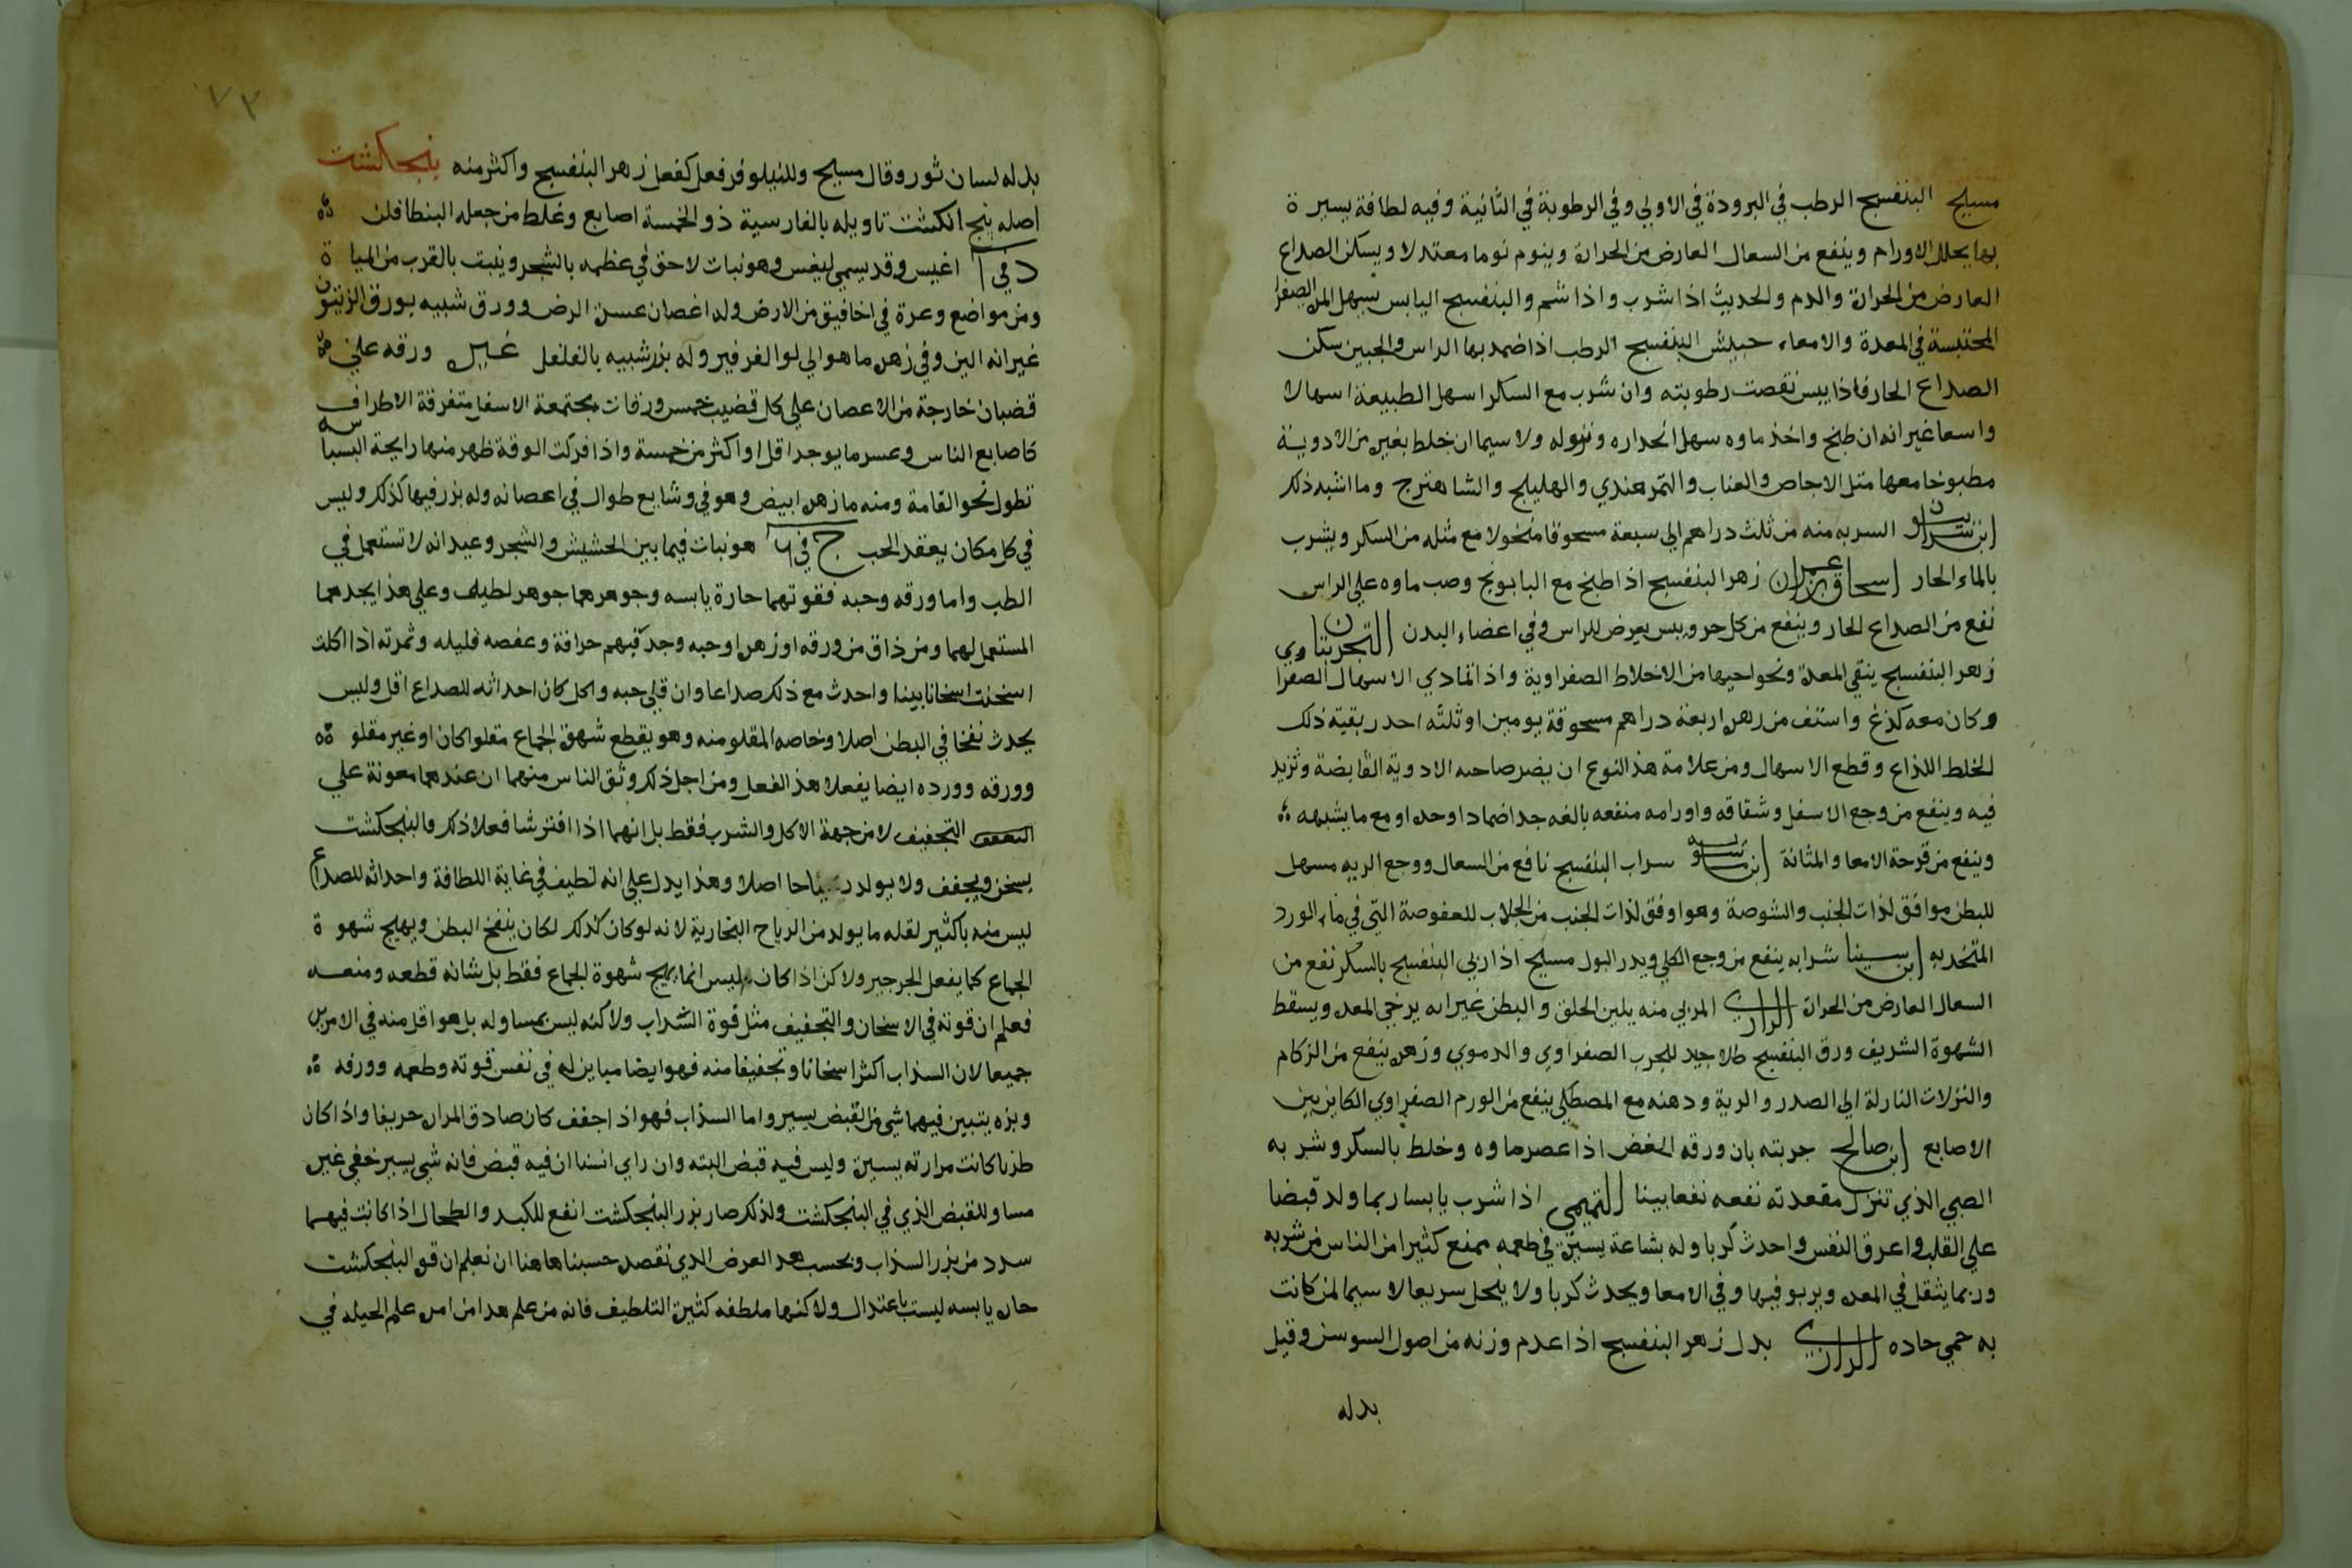 مسيح البنفسج الرطب في البرودة في الاولي وفي الرطوبة في الثانية وفيه لطافة يسيرة
بها يحلل الاورام وينفع من السعال العارض من الحرارة وينوم نوما معتدلا ويسكن الصداع
العارض من الحرارة والدم والحديث اذا شرب واذا شم والبنفسج اليابس يسهل المرة الصفرا
المحتبسة في المعدة والامعاء حبيش البنفسج الرطب اذا ضمد بها الراس والجبين سكن
الصداع الحار فاذا يبس نقصت رطوبته وان شرب مع السكر اسهل الطبيعة اسهالا
واسعا غير انه ان طبخ واخذ ماوه سهل انحداره ونزوله ولا سيما ان خلط بغيره من الادوية
مطبوخا معها مثل الاجاص والعناب والتمر هندي والهليلج والشاهترج وما اشبه ذلك
ابن سرانيون السربه منه من ثلث دراهم الي سبعة مسحوقا منخولا مع مثله من السكر ويشرب
بالماء الحار اسحاق بن عمران زهر البنفسج اذا طبخ مع البابونج وصب ماوه علي الراس
نفع من الصداع الحار وينفع من كل حر ويبس يعرض للراس وفي اعضاء البدن التجربتان
زهر البنفسج ينقي المعدة ونحو احيها من الاخلاط الصفراوية واذا تمادي الاسهال الصفراوي
وكان معه لذع واستف من زهره اربعة دراهم مسحوقة يومين او ثلثه احدر بقية ذلك
الخلط اللذاع وقطع الاسهال ومن علامة هذا النوع ان يضر صاحبه الادوية القابضة وتزيد
فيه وينفع من وجع الاسفل وشقاقه واورامه منفعه بالغه جدا ضمادا وحده او مع ما يشبهه
وينفع من قرحة الامعا والمثانة ابن ماسويه سراب البنفسج نافع من السعال ووجع الريه مسهل
للبطن موافق لذات الجنب والشوصة وهو اوفق لذات الجنب من الجلاب للعفوصة التي في ماء الورد
المتخذ به ابن سينا شرابه ينفع من وجع الكلي ويدر البول مسيح اذا ربي البنفسج بالسكر نفع من
السعال العارض من الحرارة الرازي المربي منه يلين الحلق والبطن غير انه يرخي المعده ويسقط
الشهوة الشريف ورق البنفسج طلا جيد للجرب الصفراوي والدموي وزهره ينفع من الزكام
والنزلات النازلة الي الصدر والرية ودهنه مع المصطكي ينفع من الورم الصفراوي الكاين بين
الاصابع ابن صالح جربته بان ورقه الغض اذا عصر ماوه وخلط بالسكر وشربه
الصبي الذي تنزل مقعدته نفعه نفعا بينا التميمي اذا شرب يابسا ربما ولد قبضا
علي القلب واعرق النفس واحدث كربا وله بشاعة يسيرة في طعمه يمنع كثيرا من الناس من شربه
وربما يثقل في المعده ويربو فيها وفي الامعا ويحدث كربا ولا ينحل سريعا لا سيما لمن كانت
به حمي حاده الرازي بدل زهر البنفسج اذا عدم وزنه من اصول السوسن وقيل
بدله
٧٣
بدله لسان ثور وقال مسيح وللنيلوفر فعل كفعل زهر البنفسج واكثر منه بنجكشت
اصله بنج انكشت تاويله بالفارسية ذو الخمسة اصابع وغلط من جعله البنطافلن
د في ا اغيس وقد يسمي ليغس وهو نبات لاحق في عظمه بالشجر وينبت بالقرب من المياه
ومن مواضع وعرة في اخافيق من الارض وله اغصان عسرة الرض وورق شبيه بورق الزيتون
غير انه الين وفي زهره ما هو الي لون الفرفير وله بزر شبيه بالفلفل غيره ورقه علي
قضبان خارجة من الاغصان علي كل قضيب خمس ورقات مجتمعة الاسفل متفرقة الاطراف
كاصابع الناس وعسر ما يوجد اقل او اكثر من خمسة واذا فركت الورقة ظهر منها رايحة البسباسه
تطول نحو القامة ومنه ما زهره ابيض وهو في وشايع طوال في اعصانه وله بزر فيها كذلك وليس
في كل مكان يعقد الحب ج في ٦ هو نبات فيما بين الحشيش والشجر وعيدانه لا تستعمل في
الطب واما ورقه وحبه فقوتهما حارة يابسه وجوهرهما جوهر لطيف وعلي هذا يجدهما
المستعمل لهما ومن ذاق من ورقه او زهره او حبه وجد فيهم حرافة وعفصه قليله وثمرته اذا اكلت
اسخنت اسخانا بينا واحدث مع ذلك صداعا وان قلي حبه واكل كان احداثه للصداع اقل وليس
يحدث نفخا في البطن اصلا وخاصه المقلو منه وهو يقطع شهوة الجماع مقلوا كان او غير مقلو
وورقه وورده ايضا يفعلا هذا الفعل ومن اجل ذلك وثق الناس منهما ان عندهما معونة علي
التعفف التجفيف لا من جهة الاكل والشرب فقط بل انهما اذا افترشا فعلا ذلك والبنجكشت
يسخن ويجفف ولا يولد رياحا اصلا وهذا يدل علي انه لطيف في غاية اللطافة واحداثه للصداع
ليس منه باكثير لقله ما يولد من الرياح البخارية لانه لو كان كذلك لكان ينفخ البطن ويهيج شهوة
الجماع كما يفعل الجرجير ولاكن اذا كان ليس انما يهيج شهوة الجماع فقط بل شانه قطعه ومنعه
فعلم ان قوته في الاسخان والتجفيف مثل قوة السذاب ولاكنه ليس بمساو له بل هو اقل منه في الامرين
جميعا لان السذاب اكثر اسخانا وتجفيفا منه فهو ايضا مباين له في نفس قوته وطعمه وورقه
وبزه يتبين فيهما شي من القبض يسير واما السذاب فهو اذا جفف كان صادق المراره حريفا واذا كان
طريا كانت مرارته يسيرة وليس فيه قبض البته وان راي انسنا ان فيه قبض فانه شي يسير خفي غير
مساو للقبض الذي في البنجكشت ولذلك صار بزر البنجكشت انفع للكبد والطحال اذا كانت فيهما
سدد من بزر السذاب وبحسب هذا الغرض الذي نقصده حسبنا هاهنا ان نعلم ان قوة البنجكشت
حاره يابسه ليست باعتدال ولاكنها ملطفه كثيرة التلطيف فانه من علم هدا من امره علم الحيله في